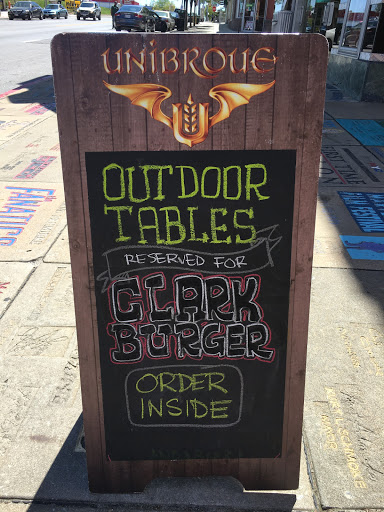 UNIBROUE
OUTDOOR
TABLES
RESERVED FOR
CLARK
BURGER
ORDER
INSIDE